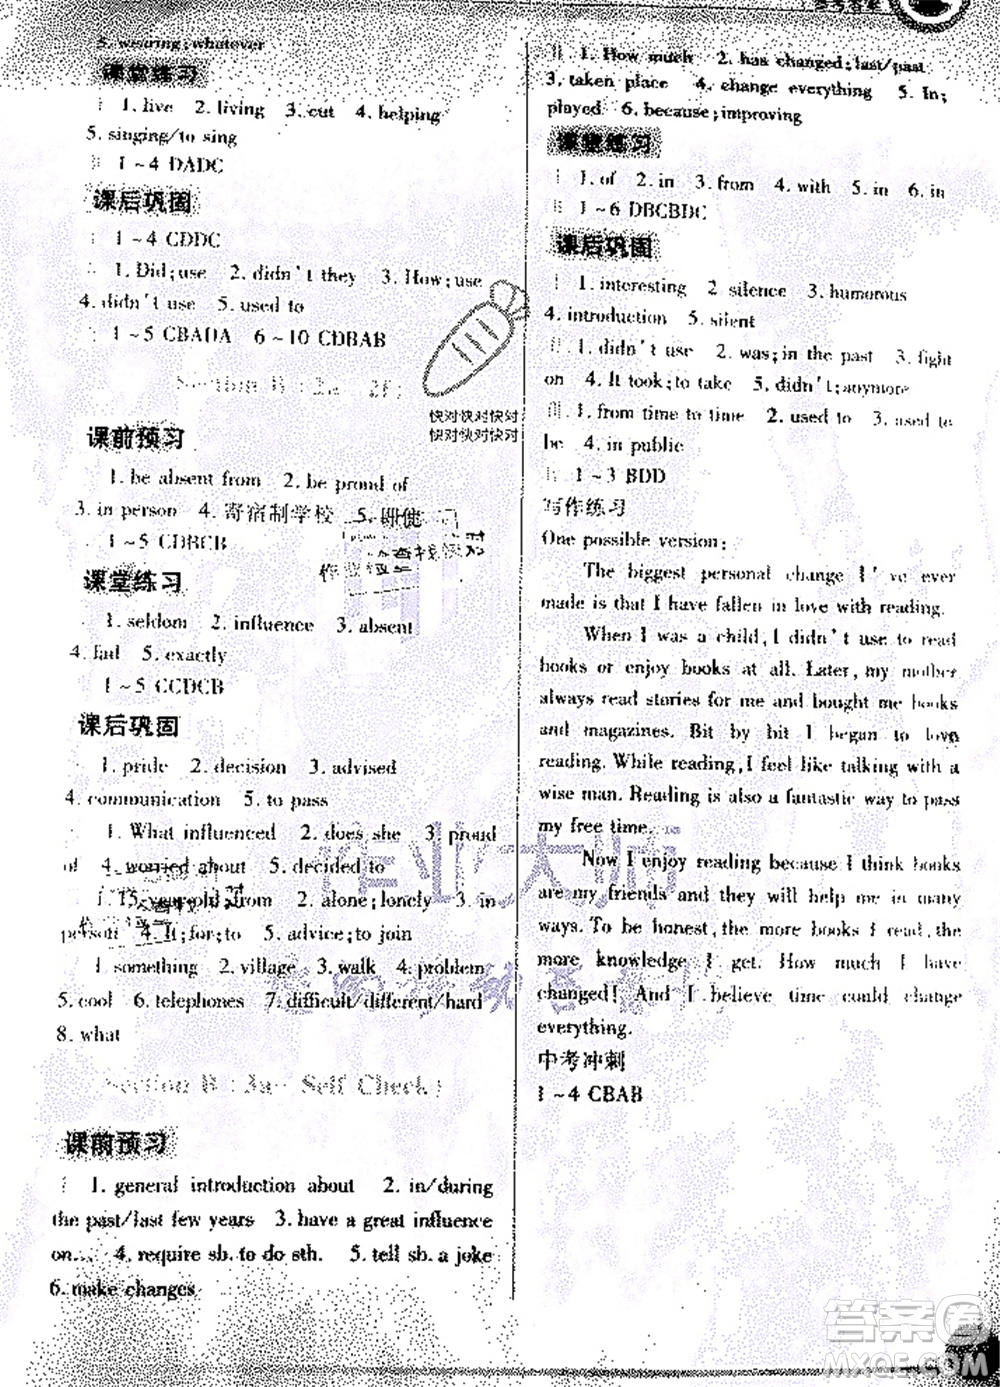 参考答案
5. wearing;whatever
课堂练习
1. live 2. living 3. cut 4. helping
5. singing/to sing
1~4 DADC
课后巩固
1~4 CDDC
1. Did;use 2. didn't they 3. How;use
4. didn't use 5. used to
1~5 CBADA 6~10 CDBAB
Section B:2a~2f
课前预习
1. be absent from 2. be proud of
3. in person 4. 寄宿制学校 5. 即使
1~5 CDBCB
课堂练习
1. seldom 2. influence 3. absent
4. fail 5. exactly
1~5 CCDCB
课后巩固
1. pride 2. decision 3. advised
4. communication 5. to pass
1. What influenced 2. does she 3. proud
of 4. worried about 5. decided to
1. 15-year-old;from 2. alone;lonely 3. in
person 4. It;for;to 5. advice;to join
1. something 2. village 3. walk 4. problem
5. cool 6. telephones 7. difficult/different/hard
8. what
Section B:3a~Self Check
课前预习
1. general introduction about 2. in/during
the past/last few years 3. have a great influence
on... 4. require sb. to do sth. 5. tell sb. a joke
6. make changes
1. How much 2. has changed;last/past
3. taken place 4. change everything 5. In;
played 6. because;improving
课堂练习
1. of 2. in 3. from 4. with 5. in 6. in
1~6 DBCBDC
课后巩固
1. interesting 2. silence 3. humorous
4. introduction 5. silent
1. didn't use 2. was;in the past 3. fight
on 4. It took;to take 5. didn't;anymore
1. from time to time 2. used to 3. used to
be 4. in public
1~3 BDD
写作练习
One possible version:
The biggest personal change I've ever
made is that I have fallen in love with reading.
When I was a child, I didn't use to read
books or enjoy books at all. Later, my mother
always read stories for me and bought me books
and magazines. Bit by bit I began to love
reading. While reading, I feel like talking with a
wise man. Reading is also a fantastic way to pass
my free time.
Now I enjoy reading because I think books
are my friends and influence me in many
ways. To be honest, the more books I read, the
more knowledge I get. How much I have
changed! And I believe time could change
everything.
中考冲刺
1~4 CBAB
快对快对快对
快对快对快对
作业大师
答案圈
MXQE.COM